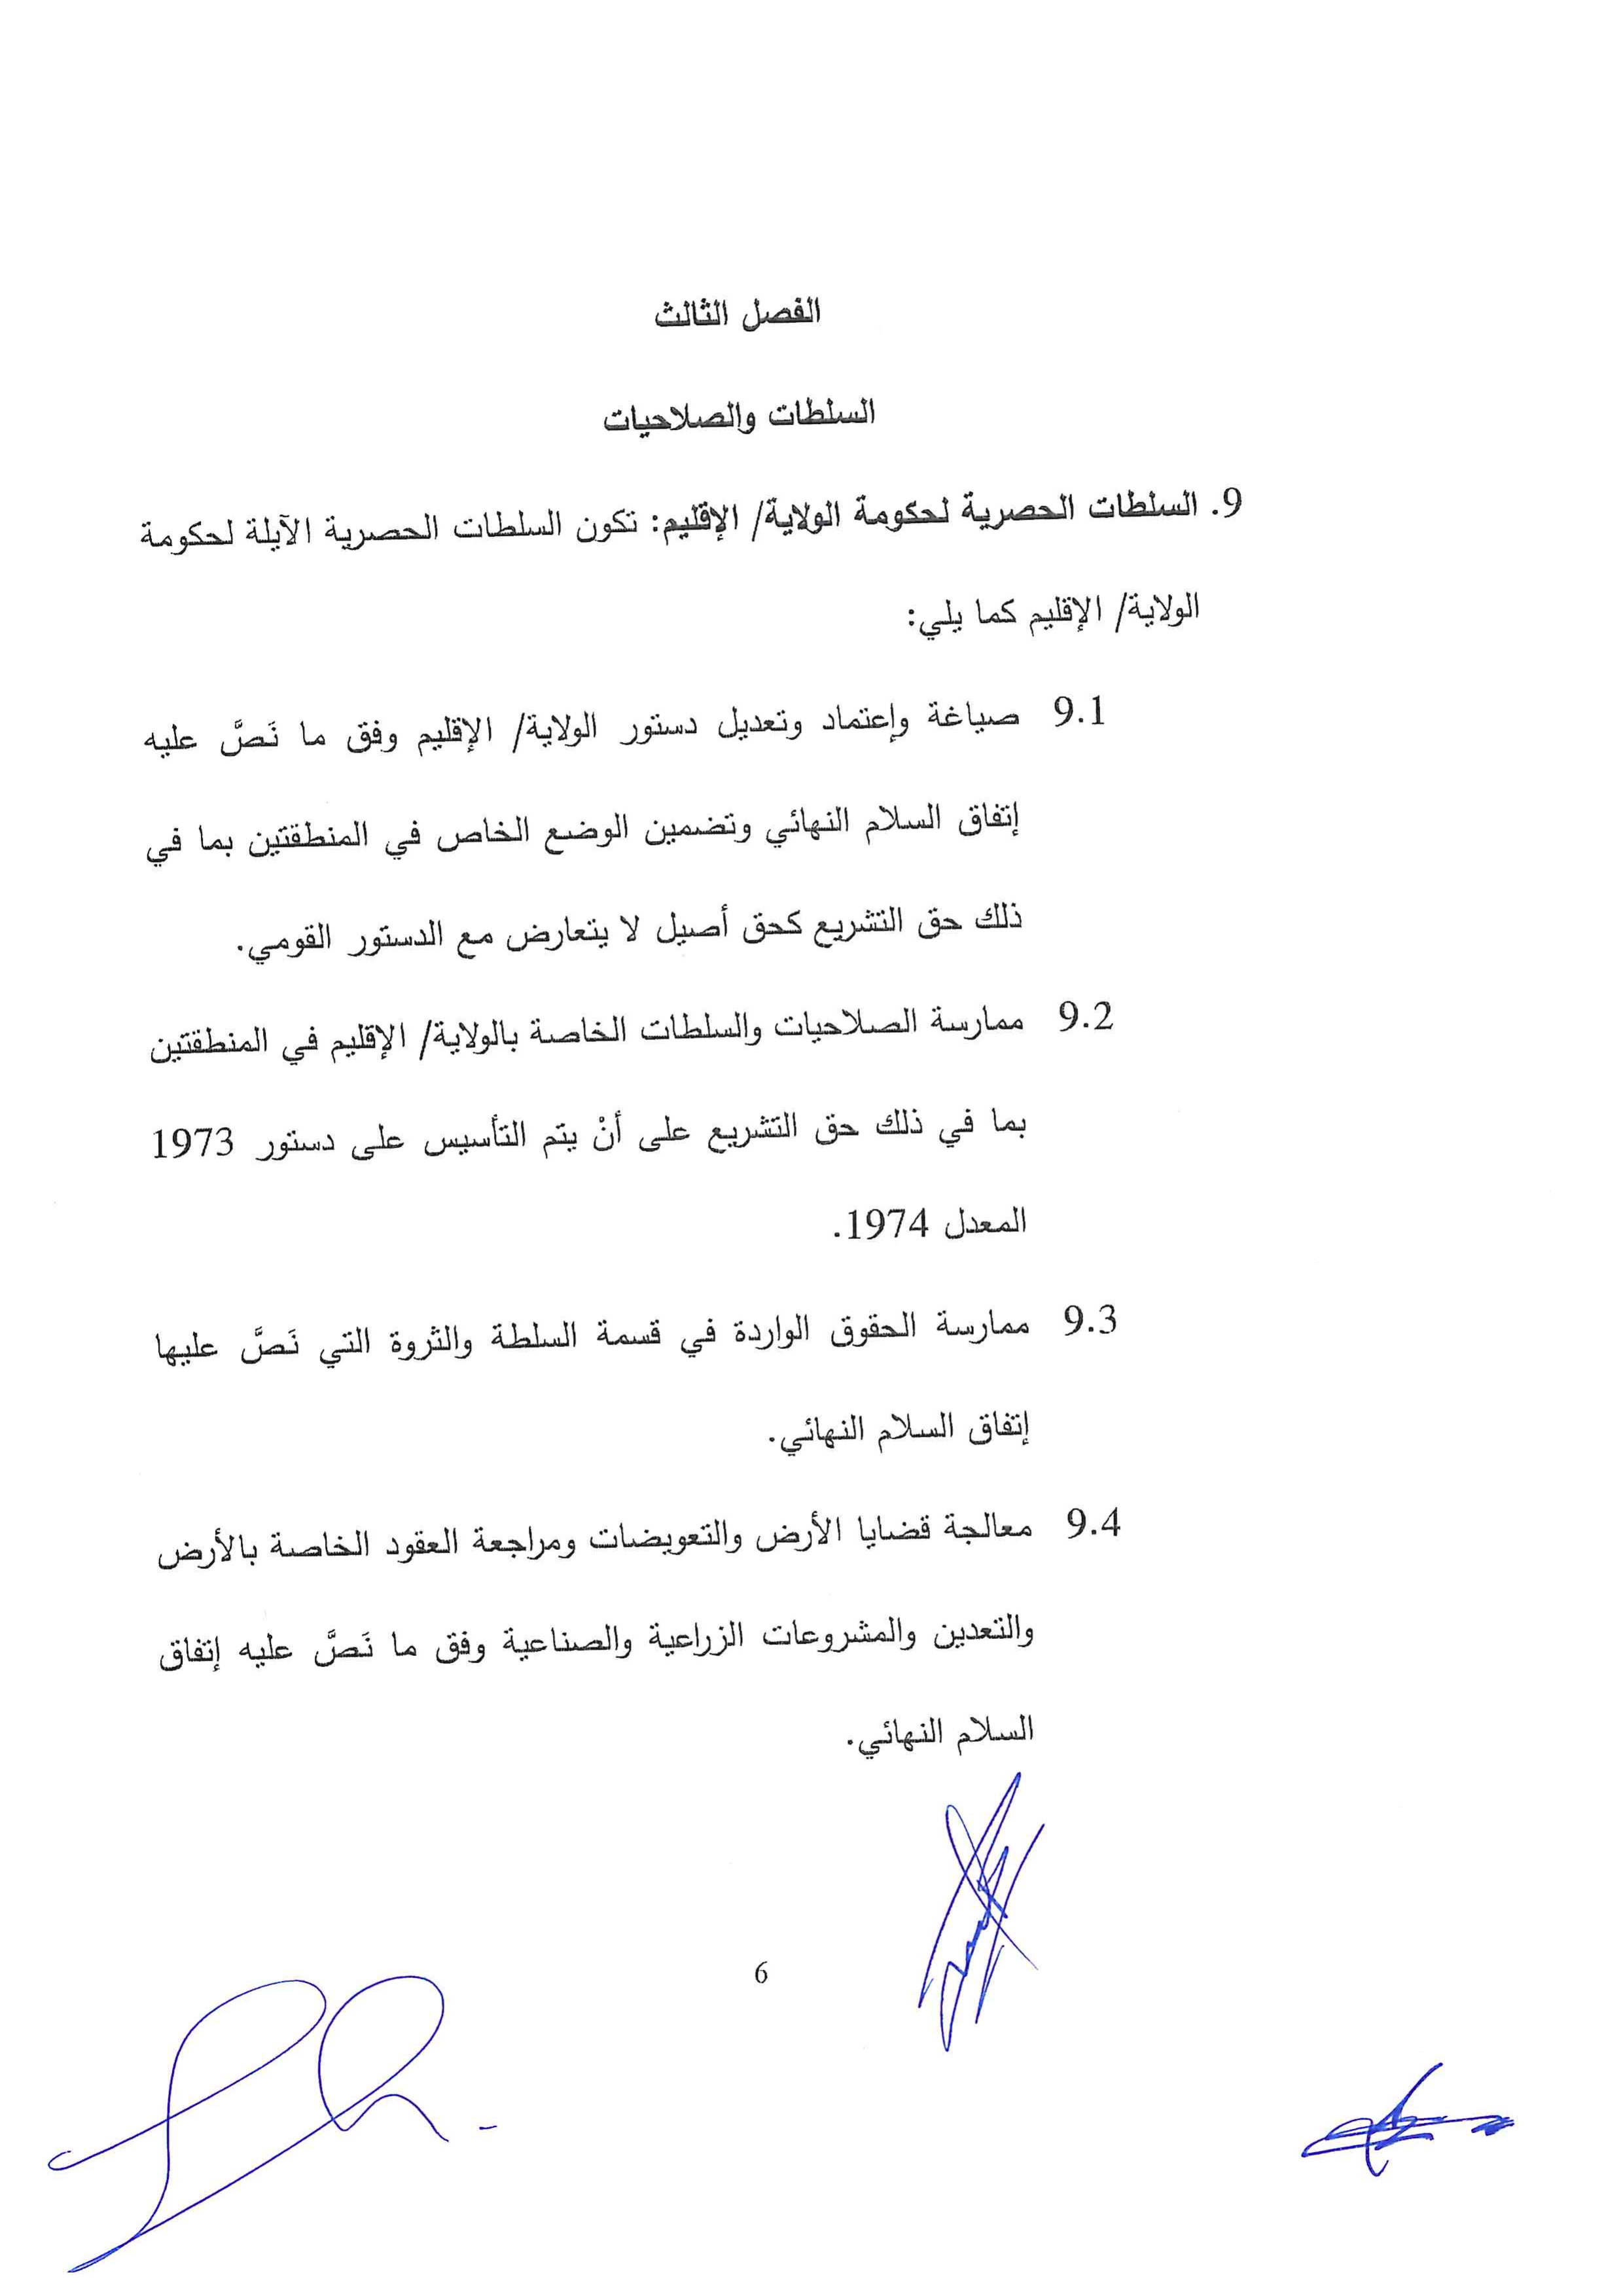 الفصل الثالث
السلطات والصلاحيات
9. السلطات الحصرية لحكومة الولاية/ الإقليم: تكون السلطات الحصرية الآيلة لحكومة
الولاية/ الإقليم كما يلي:
9.1 صياغة وإعتماد وتعديل دستور الولاية/ الإقليم وفق ما نَصَّ عليه
إتفاق السلام النهائي وتضمين الوضع الخاص في المنطقتين بما في
ذلك حق التشريع كحق أصيل لا يتعارض مع الدستور القومي.
9.2 ممارسة الصلاحيات والسلطات الخاصة بالولاية/ الإقليم في المنطقتين
بما في ذلك حق التشريع على أنْ يتم التأسيس على دستور 1973
المعدل 1974.
9.3 ممارسة الحقوق الواردة في قسمة السلطة والثروة التي نَصَّ عليها
إتفاق السلام النهائي.
9.4 معالجة قضايا الأرض والتعويضات ومراجعة العقود الخاصة بالأرض
والتعدين والمشروعات الزراعية والصناعية وفق ما نَصَّ عليه إتفاق
السلام النهائي.
6